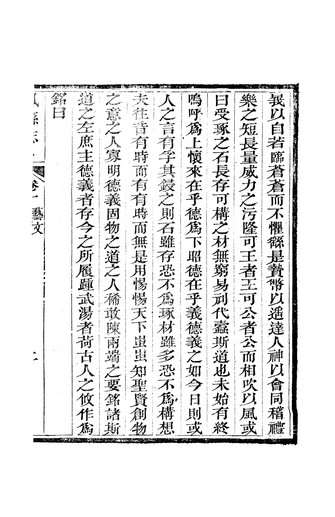 以自若蒼蒼而不懼繇是贄幣以通達人神以會同稽禮
樂之短長量威力之污隆可王者王可公者公而相吹以風或
曰受琢之石長存可構之材無窮易利代蠹斯道也未始有終
嗚呼爲上懷來在乎德爲下昭德在乎義德義之如今日則或
人之言有孚其鋟之則石雖存恐不爲琢材雖多恐不爲構想
夫往昔有時而有有時而無是用惕惕天下蚩蚩知聖賢創物
之意之人寡明德義固物之道之人稀敢陳兩端之要銘諸斯
道之左庶主德義者存今之所履踵武湯者荷古人之攸作爲
銘曰
縣志
卷十藝文